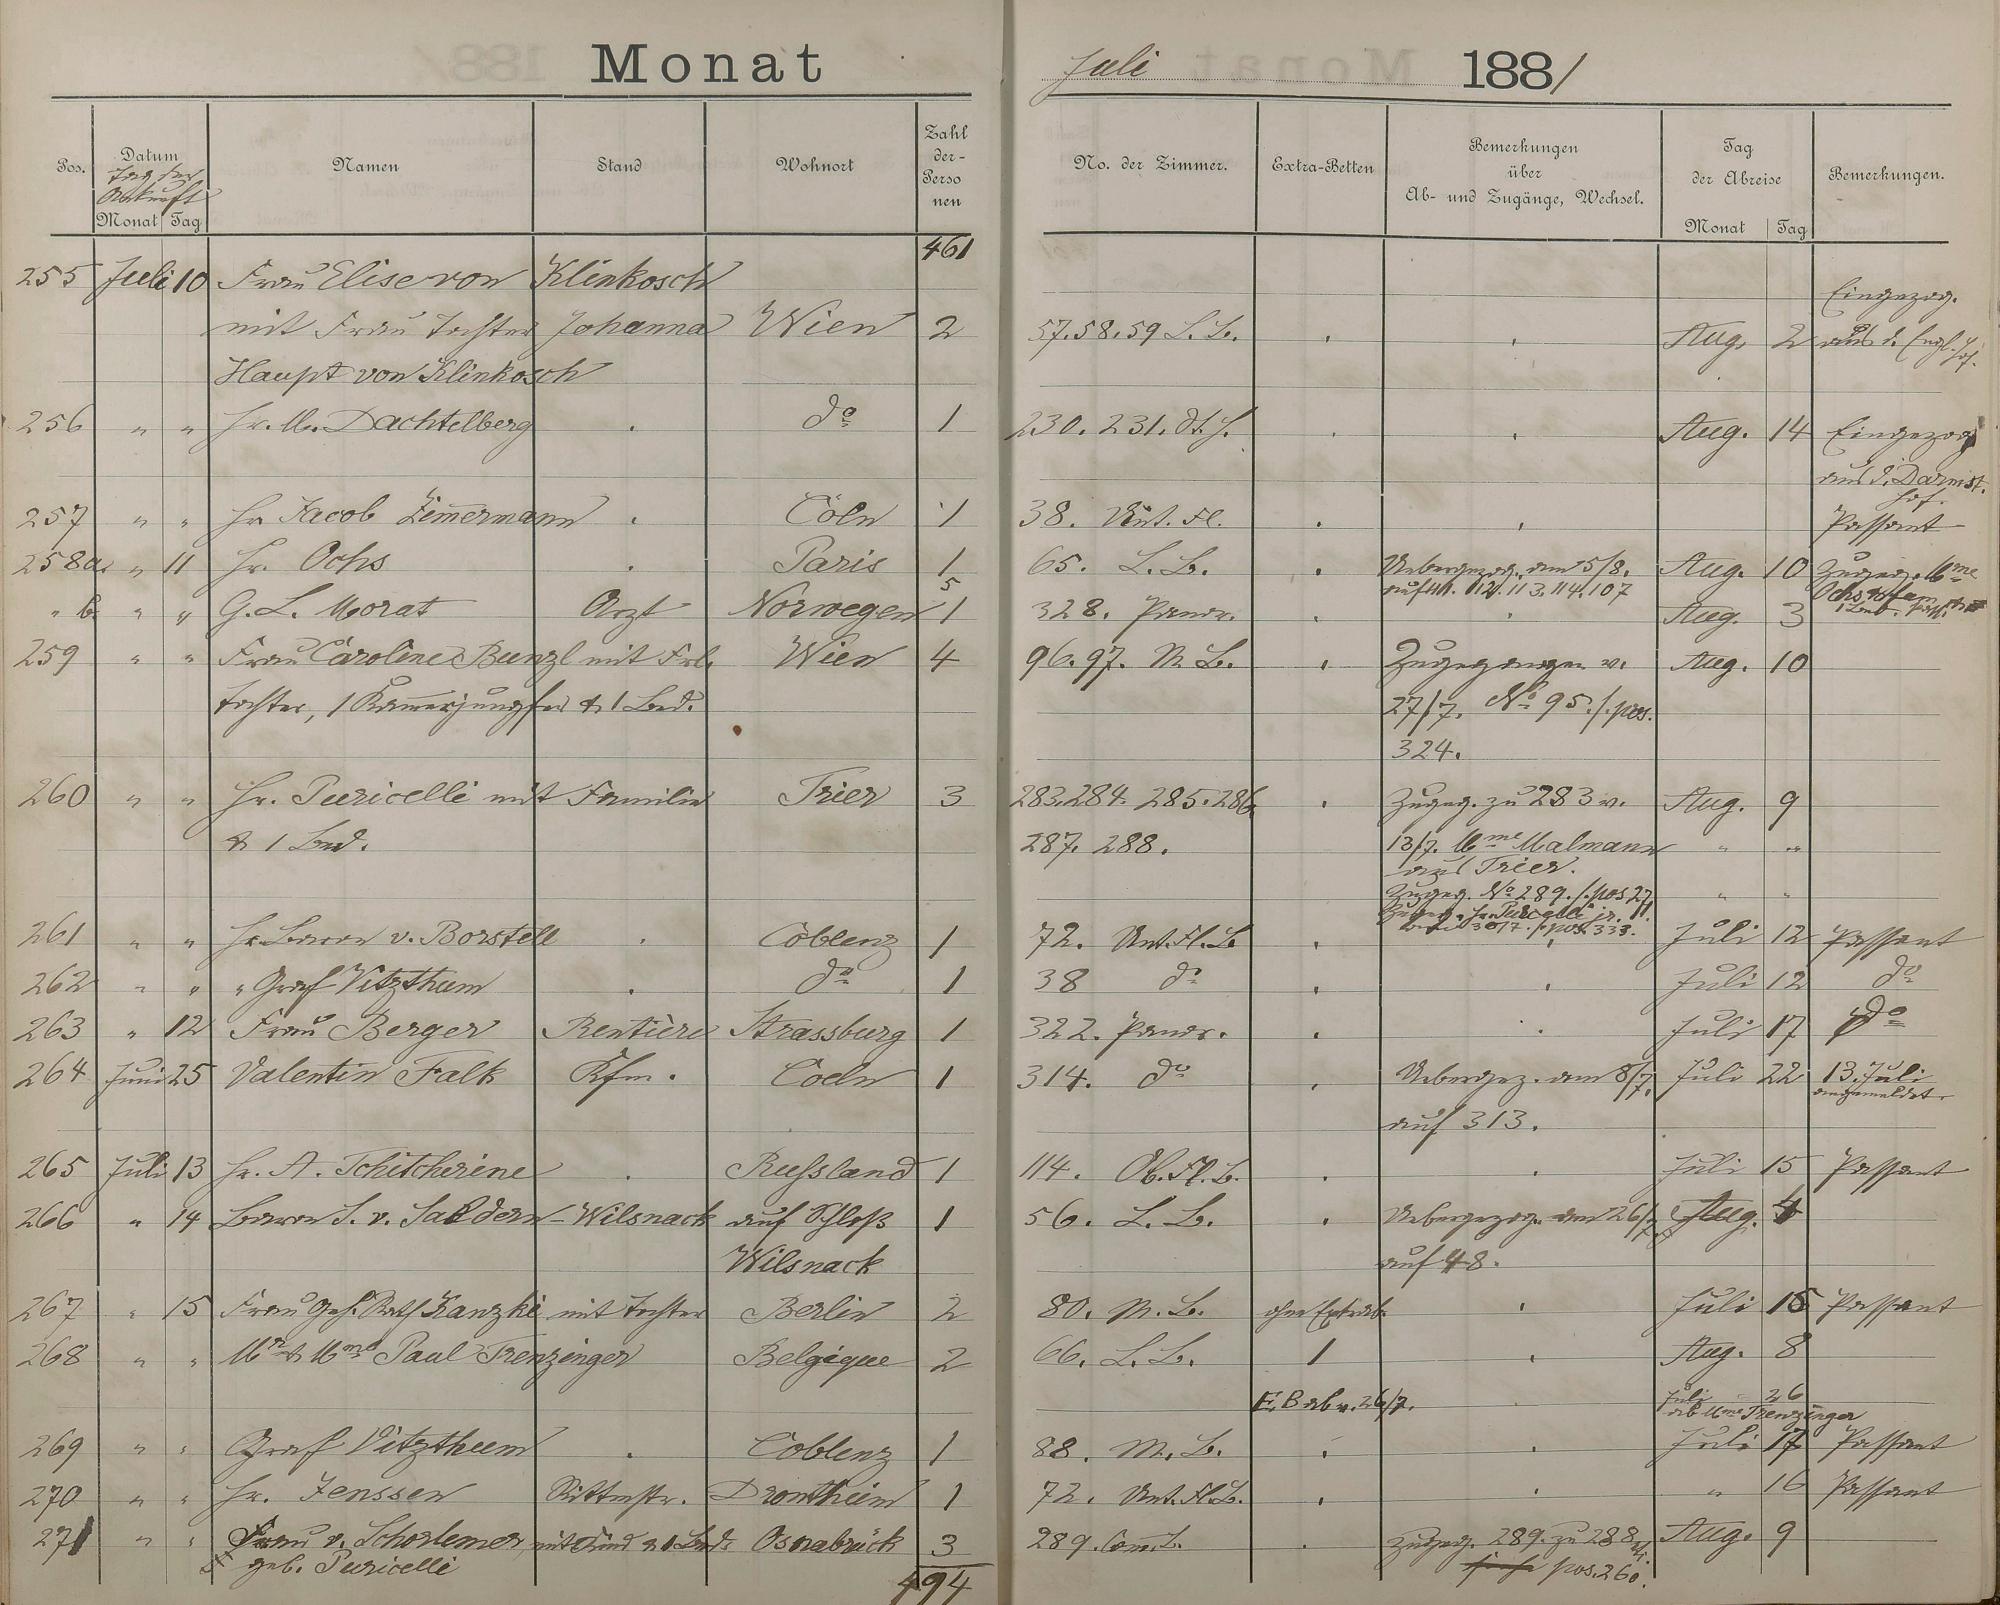 Monat
Juli 1881
Pos. Datum Namen Stand Wohnort Zahl der Personen
Tag der Ankunft
Monat Tag
No. der Zimmer. Extra-Betten Bemerkungen über Ab- und Zugänge, Wechsel. Tag der Abreise Bemerkungen.
Monat Tag
461
255 Juli 10 Frau Elise von Klinkosch
Eingezog.
mit Frau Tochter Johanna Wien 2 57.58.59 L. B. Aug. 2 aus d. Engl. Hof.
Haupt von Klinkosch
256 " " Hr. M. Dachtelberg do 1 230. 231. Aug. 14 Eingezog
aus d. Darmst. Hof.
257 " " Hr Jacob Zimmermann Cöln 1 38. Unt. Fl. Passant
258a. " 11 Hr. Ochs Paris 1 65. L. B. Uebergezog. am 5/8. Aug. 10 Zugezog. Mme
5 auf 111. 112. 113. 114. 107 Ochs
" b. " " G. L. Morat Arzt Norwegen 1 328. Aug. 3
259 " " Frau Caroline Bunzl mit Frl. Wien 4 96. 97. M. B. Zugegangen v. Aug. 10
Tochter, 1 Kammerjungfer & 1 Bed. 27/7. No 95./. pos.
324.
260 " " Hr. Puricelli mit Familie Trier 3 283. 284. 285. 286. Zugeg. zu 283 v. Aug. 9
& 1 Bed. 287. 288. 13/7. Mme Malmann " "
aus Trier.
Zugeg. No 289. /. pos 271. " "
Zugeg. Hr. Puricelli jr.
30/7. /. pos. 333.
261 " " Hr. Baron v. Borstell Coblenz 1 72. Unt. Fl. B. Juli 12 Passant
262 " " " Graf Vitzthum do 1 38 do Juli 12 do
263 " 12 Frau Berger Rentière Strassburg 1 322. Juli 17 do
264 Juni 25 Valentin Falk Kfm. Coeln 1 314. do Uebergez. am 8/7. Juli 22 13. Juli
angemeldet.
auf 313.
265 Juli 13 Hr. A. Tchitcherine Russland 1 114. Ob. Fl. B. Juli 15 Passant
266 " 14 Baron S. v. Saldern-Wilsnack auf Schloß 1 56. L. B. Uebergezog. am 26/7. Aug. 4
Wilsnack auf 48.
267 " 15 Frau Geh. Rath Kanzki mit Tochter Berlin 2 80. M. B. ohne Extrab. Juli 16 Passant
268 " " Mr & Mme Paul Trenzinger Belgique 2 66. L. B. 1 Aug. 8
E. B ab v. 26/7. Juli 26
ab Mme Trenzinger
269 " " Graf Vitzthum Coblenz 1 88. M. B. Juli 17 Passant
270 " " Hr. Jenssen Rittmstr. Drontheim 1 72. Unt. Fl. B. " 16 Passant
271 " " Frau v. Schorlemer mit Kind & 1 Bed. Osnabrück 3 289. Zugeg. 289. zu 288 Aug. 9
geb. Puricelli pos. 260.
494